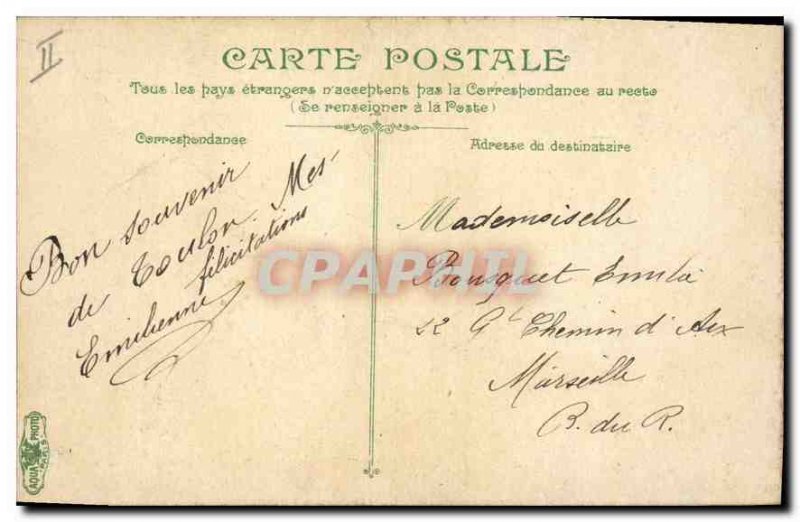 II
CARTE POSTALE
Tous les pays étrangers n'acceptent pas la Correspondance au recto
(Se renseigner à la Poste)
Correspondance
Bon souvenir
de Toulon. Mes
félicitations
Emilienne
Adresse du destinataire
Mademoiselle
Bousquet Emilia
22 Gd Chemin d'Aix
Marseille
B. du R.
CPAPHIL
AQUA PHOTO
PARIS